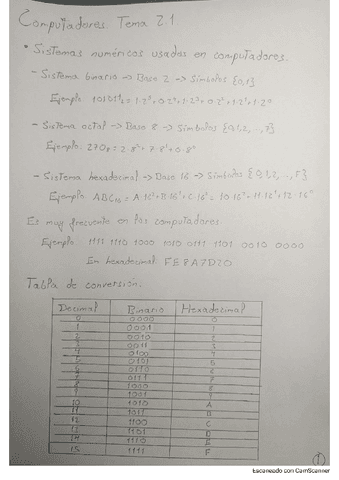 Computadores Tema 2.1
• Sistemas numéricos usados en computadores.
- Sistema binario → Base 2 → Símbolos {0,1}
Ejemplo
- Sistema octal → Base 8 → Símbolos {0,1,2,...,7}
Ejemplo: 270₈ = 2·8²+7·8¹+0·8⁰
- Sistema hexadecimal → Base 16 → Símbolos {0,1,2,...,F}
Ejemplo ABC₁₆ = A·16²+B·16¹+C·16⁰ = 10·16²+11·16¹+12·16⁰
Es muy frecuente en los computadores.
Ejemplo 1111 1110 1000 1010 0111 1101 0010 0000
En hexadecimal FE8A7D20
Tabla de conversión:
Decimal Binario Hexadecimal
0 0000 0
1 0001 1
2 0010 2
3 0011 3
4 0100 4
5 0101 5
6 0110 6
7 0111 7
8 1000 8
9 1001 9
10 1010 A
11 1011 B
12 1100 C
13 1101 D
14 1110 E
15 1111 F
1
Escaneado con CamScanner